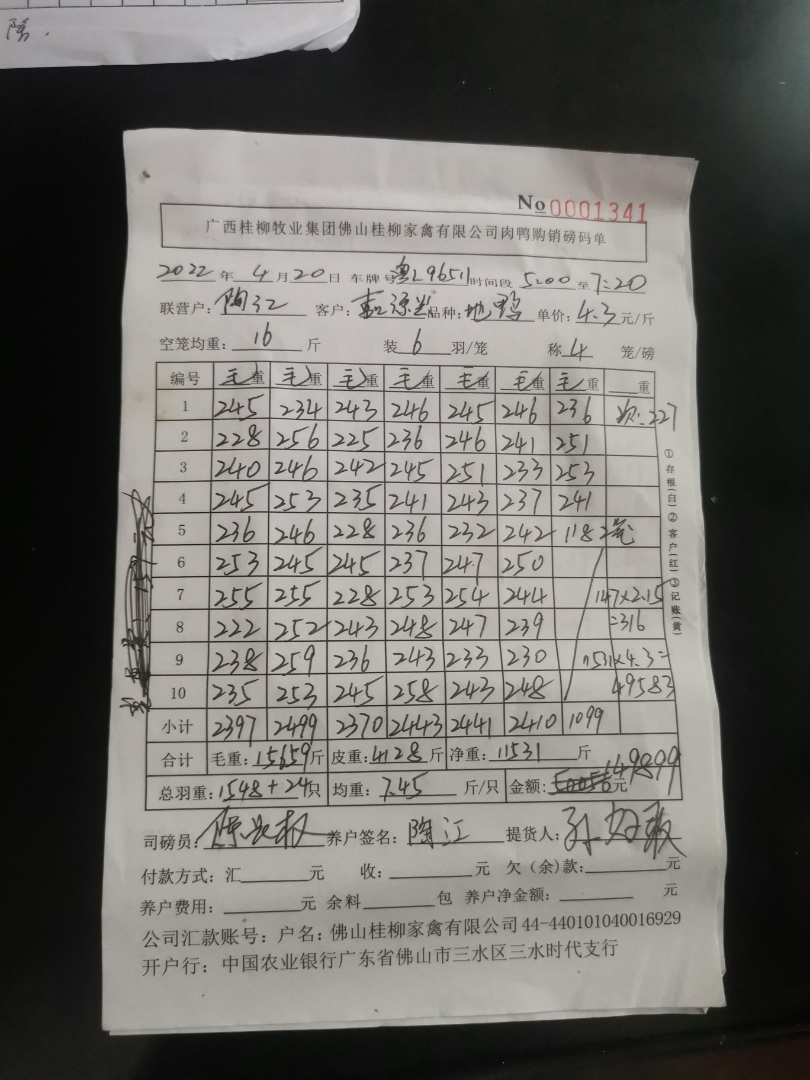 陽.
No 0001341
广西桂柳牧业集团佛山桂柳家禽有限公司肉鸭购销磅码单
2022 年 4 月 20 日 车牌号 粤L9651 时间段 5:00 至 7:20
联营户: 陶江 客户: 品种: 地鸭 单价: 4.3 元/斤
空笼均重: 16 斤 装 6 羽/笼 称 4 笼/磅
编号 毛重 毛重 毛重 毛重 毛重 毛重 毛重 重
1 245 234 243 246 245 246 236 次:227
2 228 256 225 236 246 241 251
3 240 246 242 245 251 233 253
4 245 253 235 241 243 237 241
5 236 246 228 236 232 242 118 2笼
6 253 245 245 237 247 250
7 255 255 228 253 254 244 147×2.15
8 222 252 243 248 247 239 =316
9 238 259 236 243 233 230 11531×4.3=
10 235 253 245 258 243 248 49583
小计 2397 2499 2370 2443 2441 2410 1099
合计 毛重: 15659 斤 皮重: 4128 斤 净重: 11531 斤
总羽重: 1548+24 只 均重: 7.45 斤/只 金额: 49899 元
①存根(白)②客户(红)③记账(黄)
司磅员: 养户签名: 陶江 提货人:
付款方式: 汇 元 收: 元 欠(余)款: 元
养户费用: 元 余料 包 养户净金额: 元
公司汇款账号: 户名: 佛山桂柳家禽有限公司 44-440101040016929
开户行: 中国农业银行广东省佛山市三水区三水时代支行